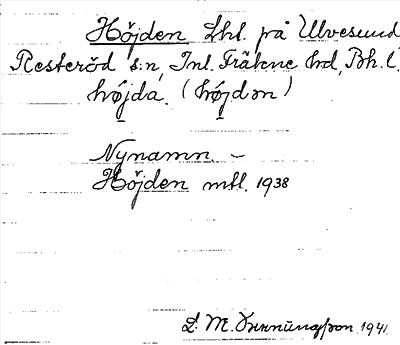 Höjden Lhl. på Ulvesund
Resteröd s:n, Inl. Fräkne hd, Bh. l.
højda. (højdən)
Nynamn. –
Höjden mtl. 1938
L. M. 1941.